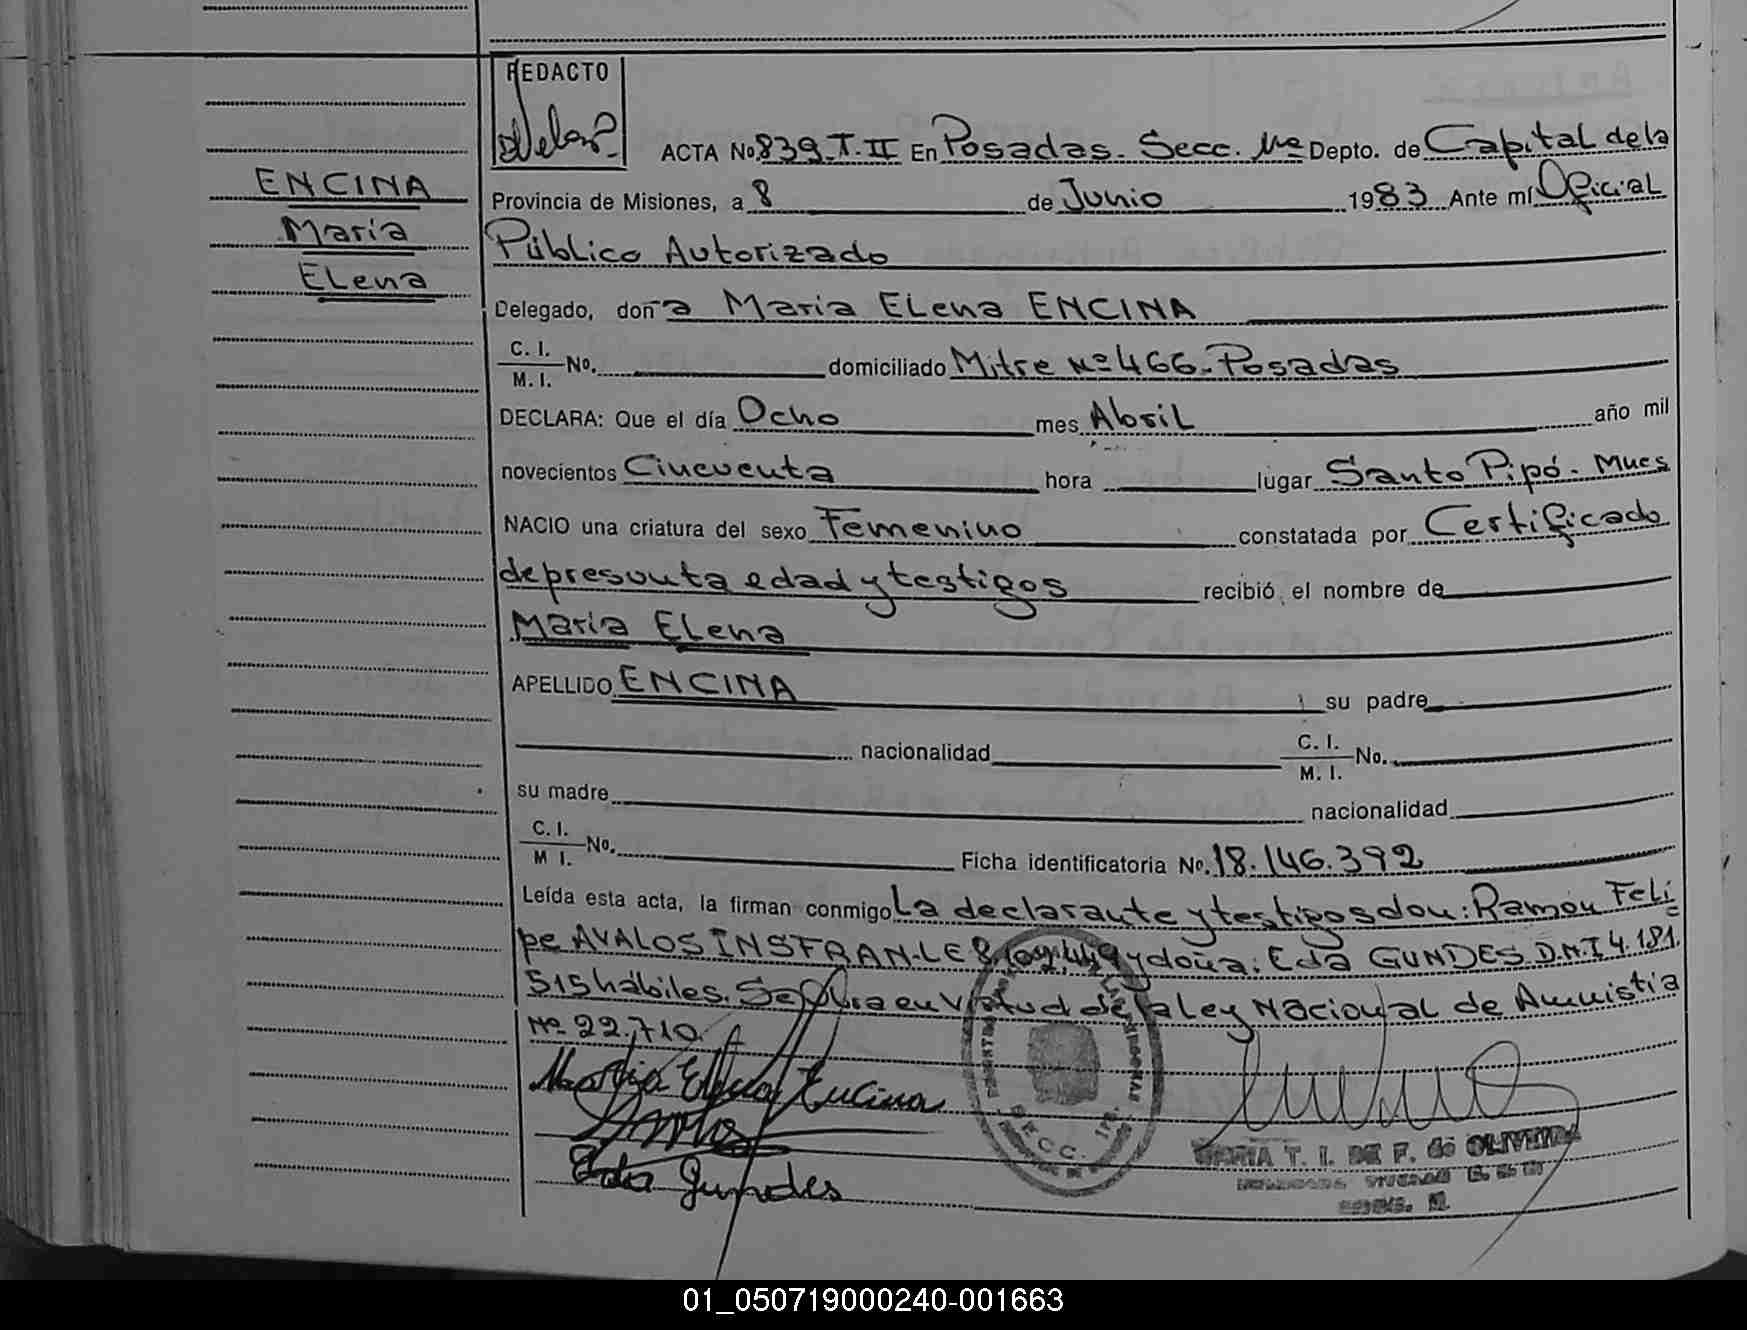 REDACTO
ACTA No. 839. T. II En Posadas. Secc. 1ra Depto. de Capital de la
ENCINA
María
ELena
Provincia de Misiones, a 8 de Junio 1983 Ante mí Oficial
Público Autorizado
Delegado, doña María ELena ENCINA
C. I.
M. I. No. domiciliado Mitre Nº 466. Posadas
DECLARA: Que el día Ocho mes Abril año mil
novecientos Cincuenta hora lugar Santo Pipó. Mnes
NACIO una criatura del sexo Femenino constatada por Certificado
de presunta edad y testigos recibió el nombre de
María Elena
APELLIDO ENCINA su padre
nacionalidad C. I.
M. I. No.
su madre nacionalidad
C. I.
M I. No. Ficha identificatoria No. 18.146.392
Leída esta acta, la firman conmigo La declarante y testigos don: Ramón Feli
pe AVALOS INSFRAN-LE 8. y doña: Eda GUNDES. D.N.I 4.181.
515 hábiles. Se labra en Virtud de la Ley Nacional de Amnistia
Nº 22.710.
María Elena Encina
Eda Gundes
MARIA T. I. DE F. de OLIVEIRA
01_050719000240-001663